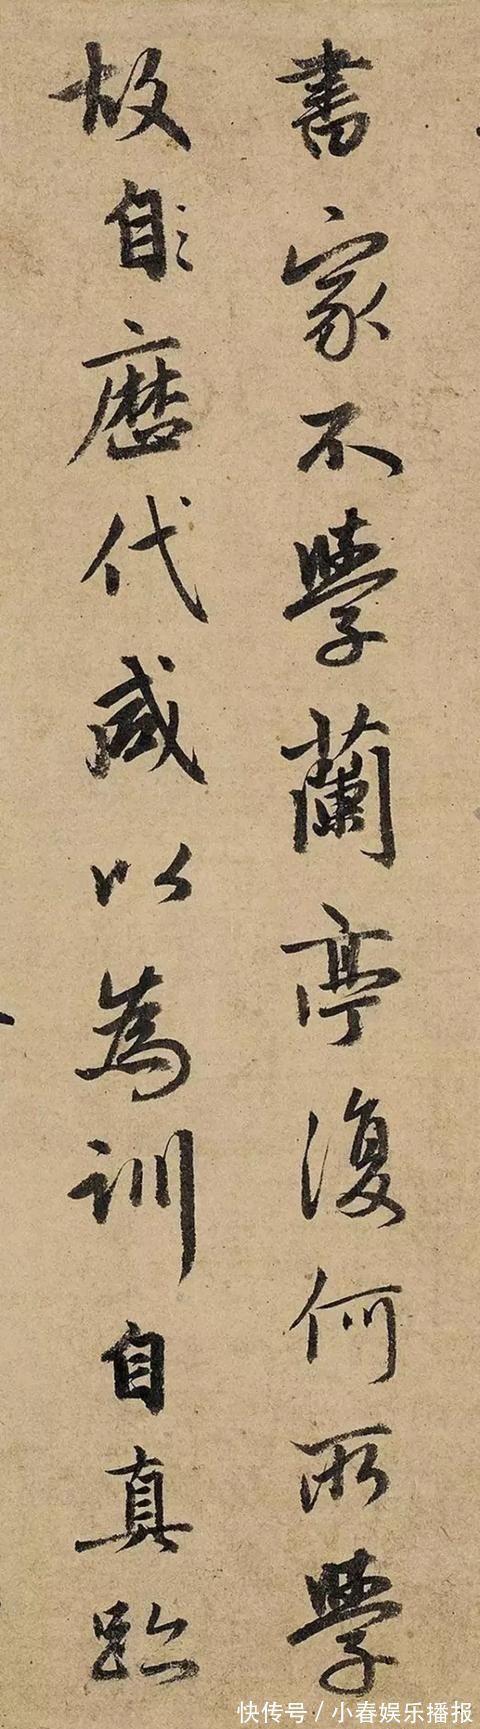 書家不學蘭亭復何所學
故自歷代咸以為訓自真跡
快传号 / 小春娱乐播报